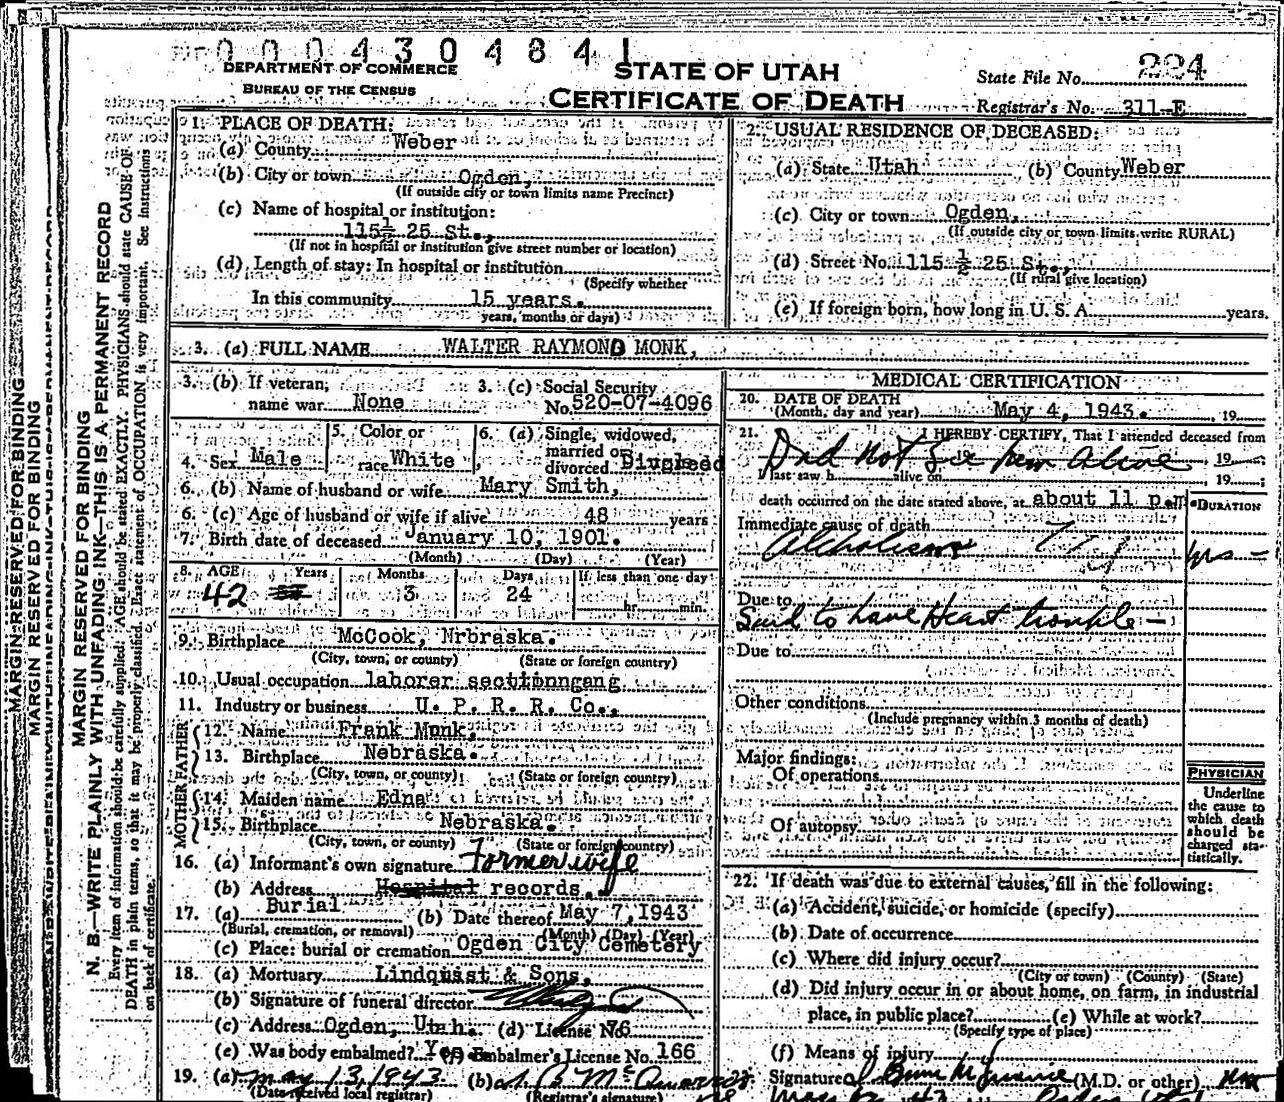 0004304841
DEPARTMENT OF COMMERCE
BUREAU OF THE CENSUS
STATE OF UTAH
CERTIFICATE OF DEATH
State File No. 224
Registrar's No. 311-E
MARGIN RESERVED FOR BINDING
MARGIN RESERVED FOR BINDING
MARGIN RESERVED FOR BINDING
N. B.—WRITE PLAINLY WITH UNFADING INK—THIS IS A PERMANENT RECORD
Every item of information should be carefully supplied. AGE should be stated EXACTLY. PHYSICIANS should state CAUSE OF
DEATH in plain terms, so that it may be properly classified. Exact statement of OCCUPATION is very important. See instructions
on back of certificate.
1. PLACE OF DEATH:
(a) County Weber
(b) City or town Ogden,
(If outside city or town limits name Precinct)
(c) Name of hospital or institution:
115½ 25 St.,
(If not in hospital or institution give street number or location)
(d) Length of stay: In hospital or institution
(Specify whether
In this community 15 years.
years, months or days)
2. USUAL RESIDENCE OF DECEASED:
(a) State Utah (b) County Weber
(c) City or town Ogden,
(If outside city or town limits write RURAL)
(d) Street No. 115 ½ 25 St.,
(If rural give location)
(e) If foreign born, how long in U. S. A. years.
3. (a) FULL NAME WALTER RAYMOND MONK,
3. (b) If veteran, name war None
3. (c) Social Security No. 520-07-4096
4. Sex Male
5. Color or race White
6. (a) Single, widowed, married or divorced
6. (b) Name of husband or wife Mary Smith,
6. (c) Age of husband or wife if alive 48 years
7. Birth date of deceased January 10, 1901.
(Month) (Day) (Year)
8. AGE Years Months Days If less than one day
42 3 24 hr. min.
9. Birthplace McCook, Nrbraska.
(City, town, or county) (State or foreign country)
10. Usual occupation laborer sectionngang
11. Industry or business U. P. R. R. Co.,
FATHER
12. Name Frank Monk,
13. Birthplace Nebraska.
(City, town, or county) (State or foreign country)
MOTHER
14. Maiden name Edna
15. Birthplace Nebraska.
(City, town, or county) (State or foreign country)
16. (a) Informant's own signature Former wife
(b) Address Hospital records.
17. (a) Burial (b) Date thereof May 7, 1943
(Burial, cremation, or removal) (Month) (Day) (Year)
(c) Place: burial or cremation Ogden City Cemetery
18. (a) Mortuary Lindquist & Sons,
(b) Signature of funeral director
(c) Address Ogden, Utah. (d) License No. 76
(e) Was body embalmed? Yes (f) Embalmer's License No. 166
19. (a) May 13, 1943 (b)
(Date received local registrar) (Registrar's signature)
MEDICAL CERTIFICATION
20. DATE OF DEATH
(Month, day and year) May 4, 1943. , 19
21. I HEREBY CERTIFY, That I attended deceased from
Did not see him alive 19
I last saw h alive on 19 ;
death occurred on the date stated above, at about 11 p.m
DURATION
Immediate cause of death
Alcholism hrs —
Due to
Said to have Heart trouble —
Due to
Other conditions
(Include pregnancy within 3 months of death)
Major findings:
Of operations
Of autopsy
PHYSICIAN
Underline
the cause to
which death
should be
charged sta-
tistically.
22. If death was due to external causes, fill in the following:
(a) Accident, suicide, or homicide (specify)
(b) Date of occurrence
(c) Where did injury occur?
(City or town) (County) (State)
(d) Did injury occur in or about home, on farm, in industrial
place, in public place? (e) While at work?
(Specify type of place)
(f) Means of injury
23. Signature (M.D. or other)